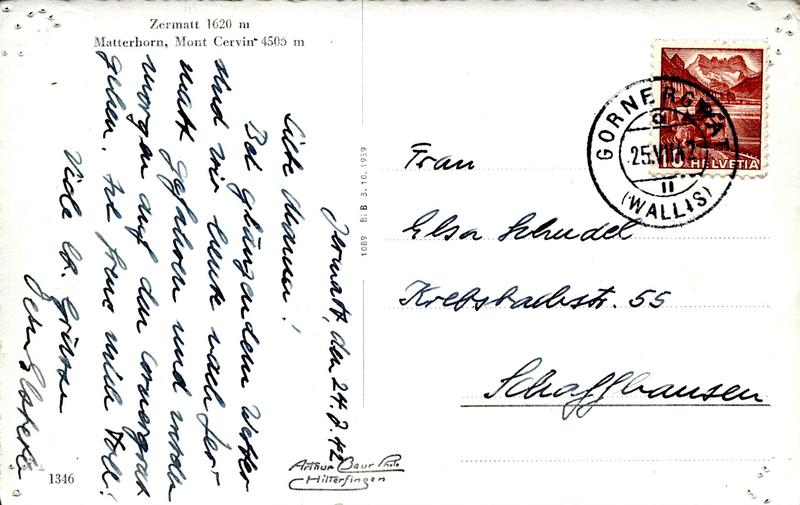 Zermatt 1620 m
Matterhorn, Mont Cervin 4505 m
Zermatt, den 24.7.42
Liebe Mamma!
Bei glänzendem Wetter
sind wir heute nach Zer-
matt gefahren und werden
morgen auf den Gornergrat
gehen. Ich freue mich toll!
Viele hz. Grüsse
1346
1089 BI.B 3.10.1939
Arthur Baur Photo
Hilterfingen
GORNERGRAT
25.VII.42
11
(WALLIS)
10 HELVETIA
Frau
Elsa Schudel
Krebsbachstr. 55
Schaffhausen